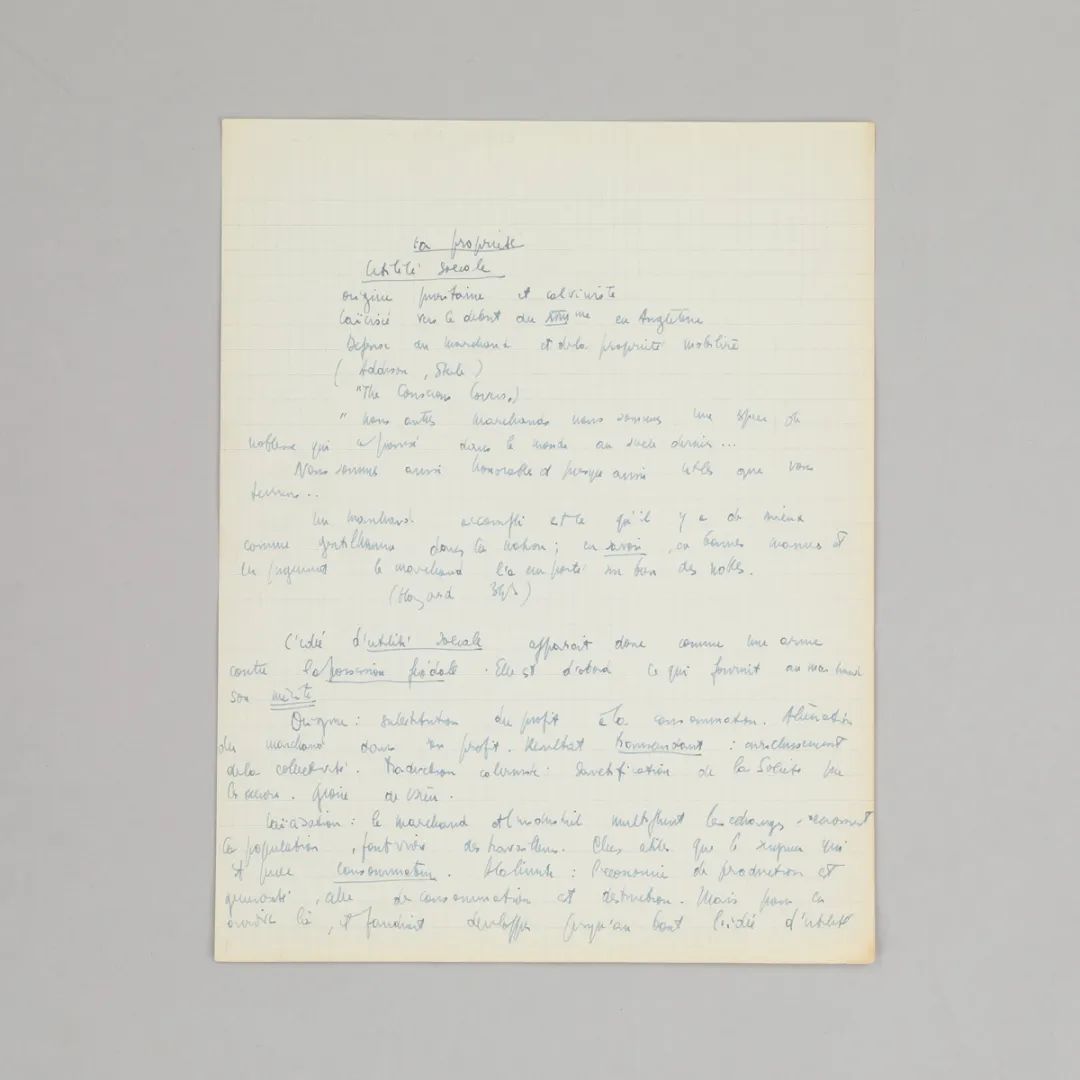 La propriété
Utilité sociale
origine puritaine et calviniste
laïcisé vers le début du XVIIIème en Angleterre
Défense du marchand et de la propriété mobilière
(Addison, Steele)
"The Conscious Lovers")
" nous autres marchands nous sommes une espèce de
noblesse qui a poussé dans le monde au siècle dernier ...
Nous sommes aussi honorables et presque aussi utiles que vous
terriens ..
Un marchand accompli est ce qu'il y a de mieux
comme gentilhomme dans la nation ; en savoir, en bonnes manières et
en jugement le marchand l'a emporté sur bon des nobles.
(Hazard
L'idée d'utilité sociale apparait donc comme une arme
contre la possession féodale. Elle est d'abord ce qui fournit au marchand
son mérite
Origine : substitution du profit à la consommation. Aliénation
du marchand dans son profit. Résultat : enrichissement
de la collectivité. Traduction calviniste : Sanctification de la Société par
les œuvres. Gloire de Dieu.
Laïcisation : le marchand et l'industriel multiplient les échanges,
la population, font vivre des travailleurs. Plus utiles que le seigneur qui
est pure consommation. A la limite : l'économie de production est
générosité, celle de consommation est destruction. Mais pour en
arriver là, il faudrait développer jusqu'au bout l'idée d'utilité